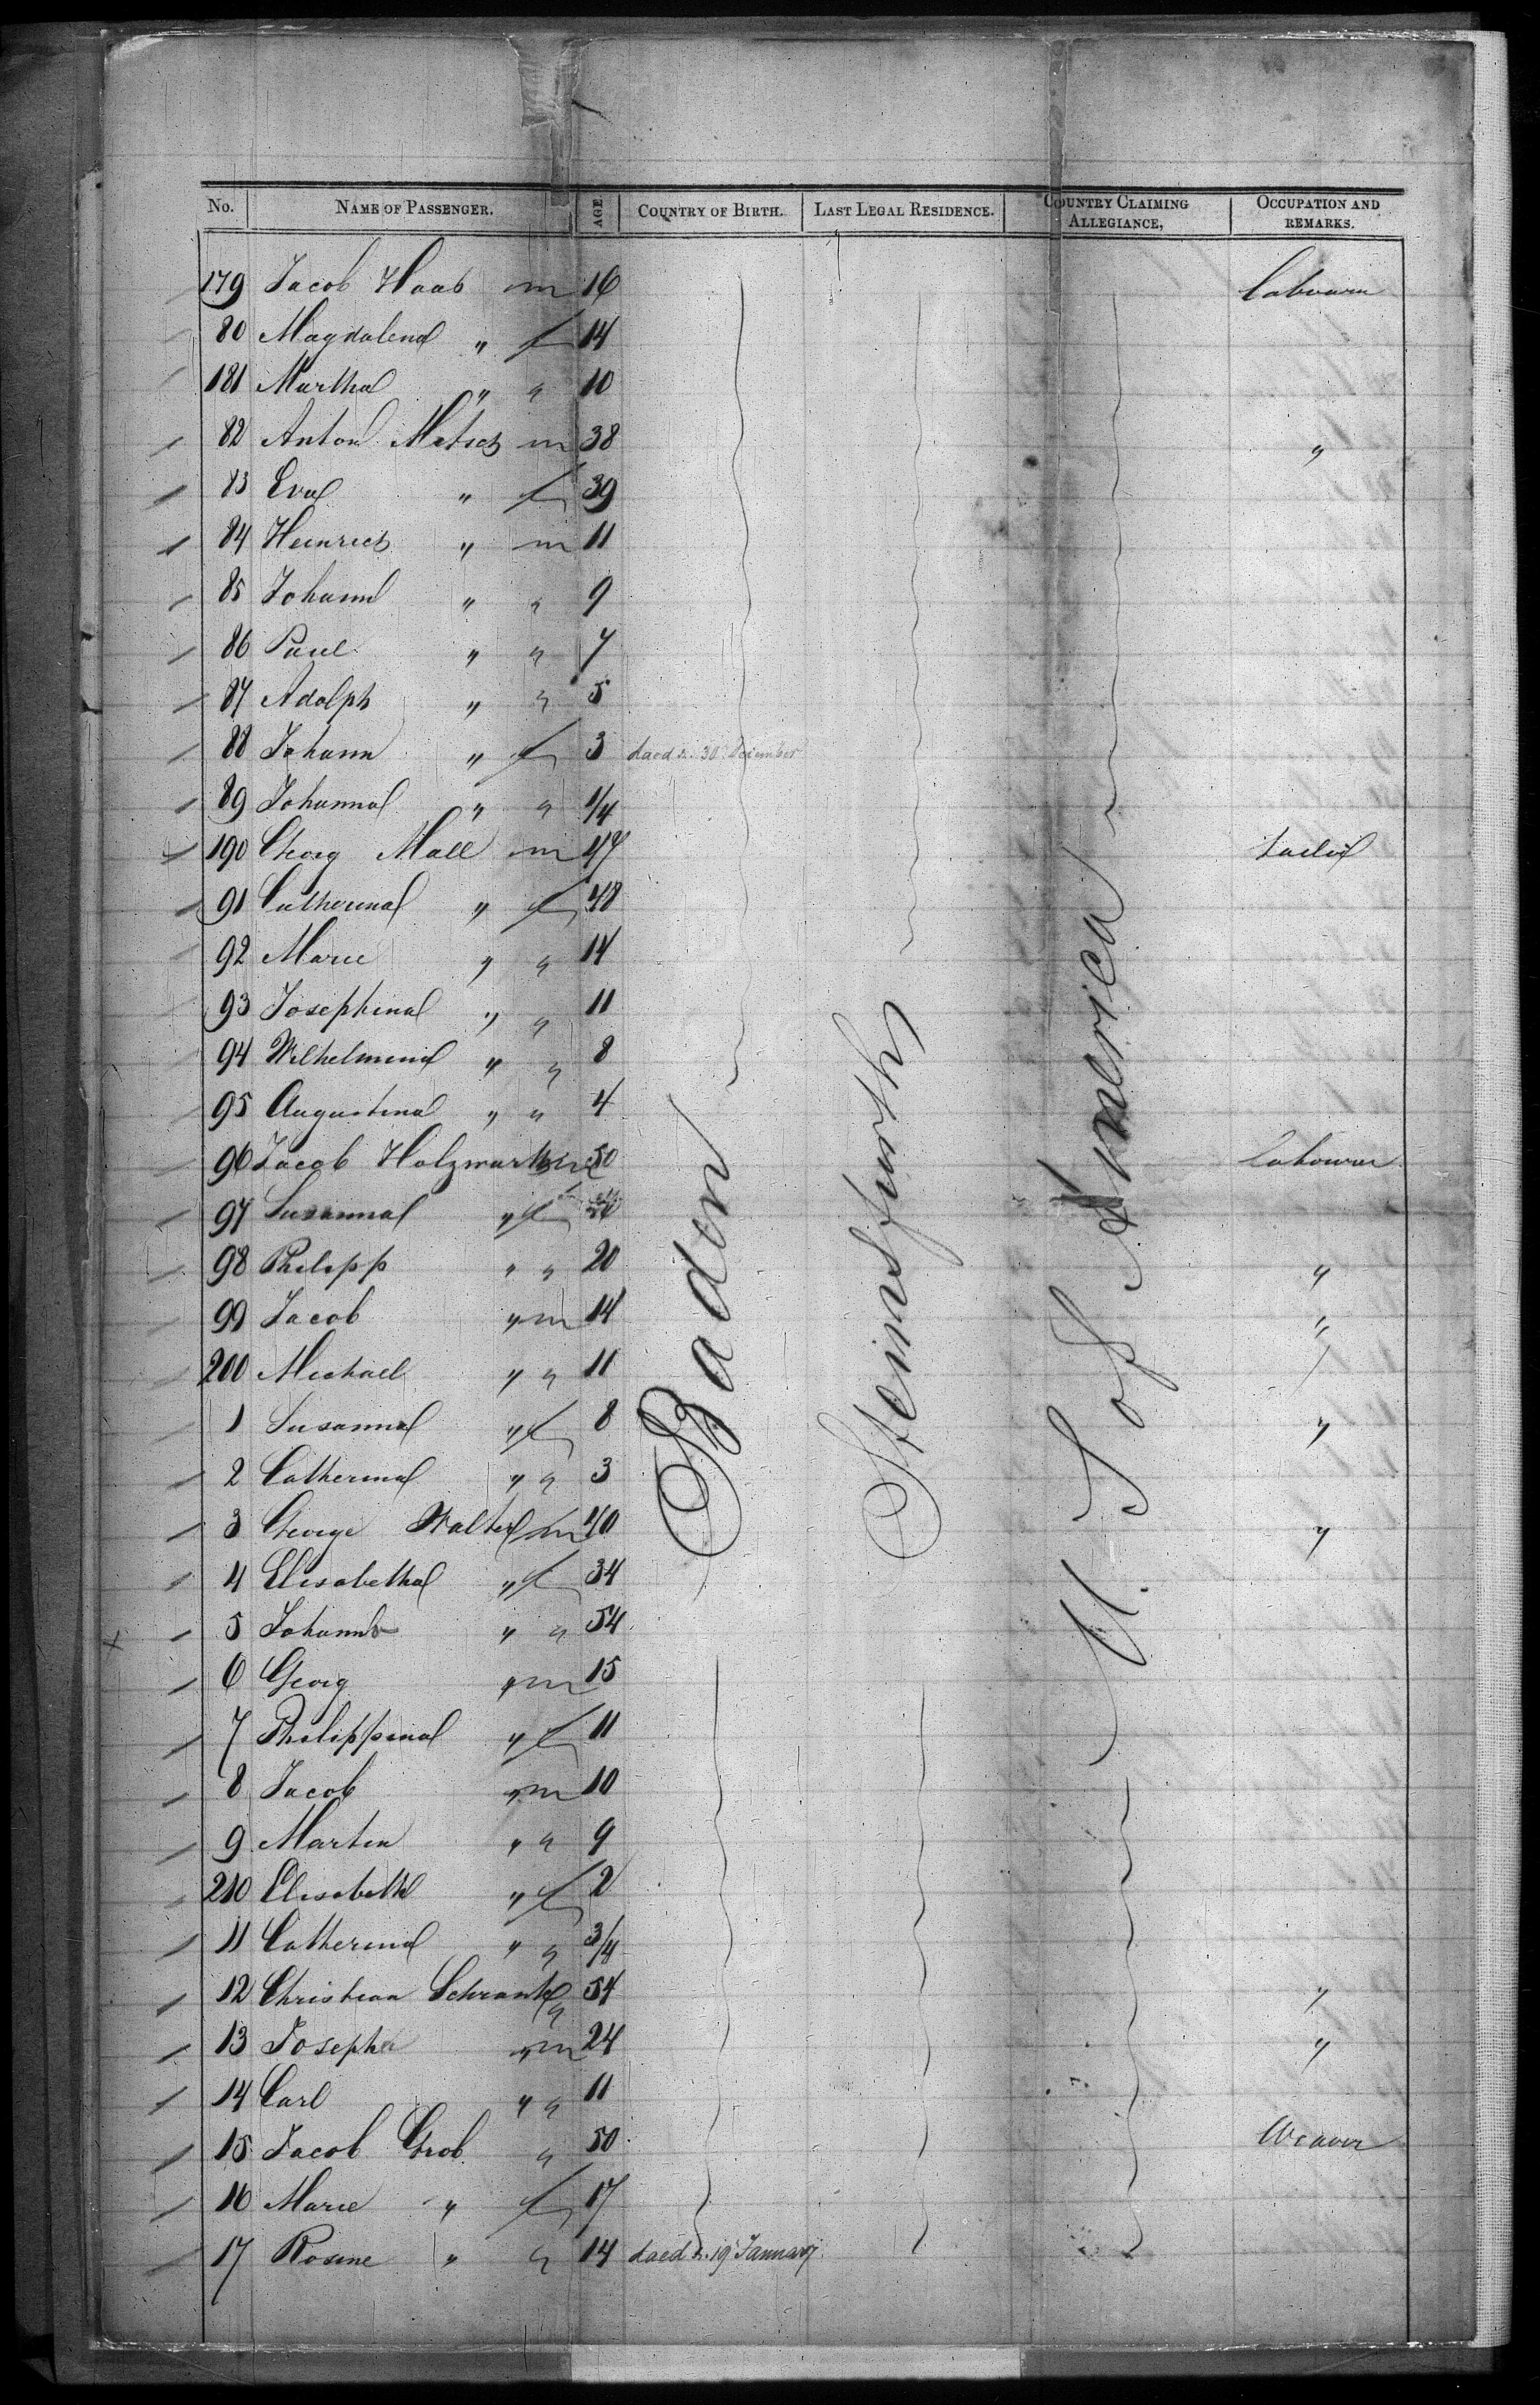 No. NAME OF PASSENGER. AGE COUNTRY OF BIRTH. LAST LEGAL RESIDENCE. COUNTRY CLAIMING ALLEGIANCE, OCCUPATION AND REMARKS.
179 Jacob Haab m 16 Labourer
80 Magdalena " f 14
181 Martha " " 10
82 Anton m 38 "
83 Eva " f 39
84 Heinrich " m 11
85 Johann " " 9
86 Paul " " 7
87 Adolph " " 5
88 Johann " f 3 daed n. 30 December
89 Johanna " " 1/4
190 Georg Mall m 47
91 Catherina " f 48
92 Marie " " 14
93 Josephina " " 11
94 Wilhelmina " " 8
95 Augustina " " 4
96 Jacob Holzwarth m 50 Labourer
97 Susanna " f
98 Philipp " " 20 "
99 Jacob " m 14 "
200 Michael " " 11
1 Susanna " f 8 "
2 Catherina " " 3
3 George Walter m 40 "
4 Elisabetha " f 34
5 " " 54
6 Georg " m 15
7 Philippina " f 11
8 Jacob " m 10
9 Martin " " 9
210 Elisabeth " f 2
11 Catherina " " 3/4
12 Christian " 54 "
13 Joseph " m 24 "
14 Carl " " 11
15 Jacob Grob " 50 Weaver
16 Marie " f 17
17 Rosine " " 14 daed n. 19 January
Baden
Steinsfurth
U. S of America